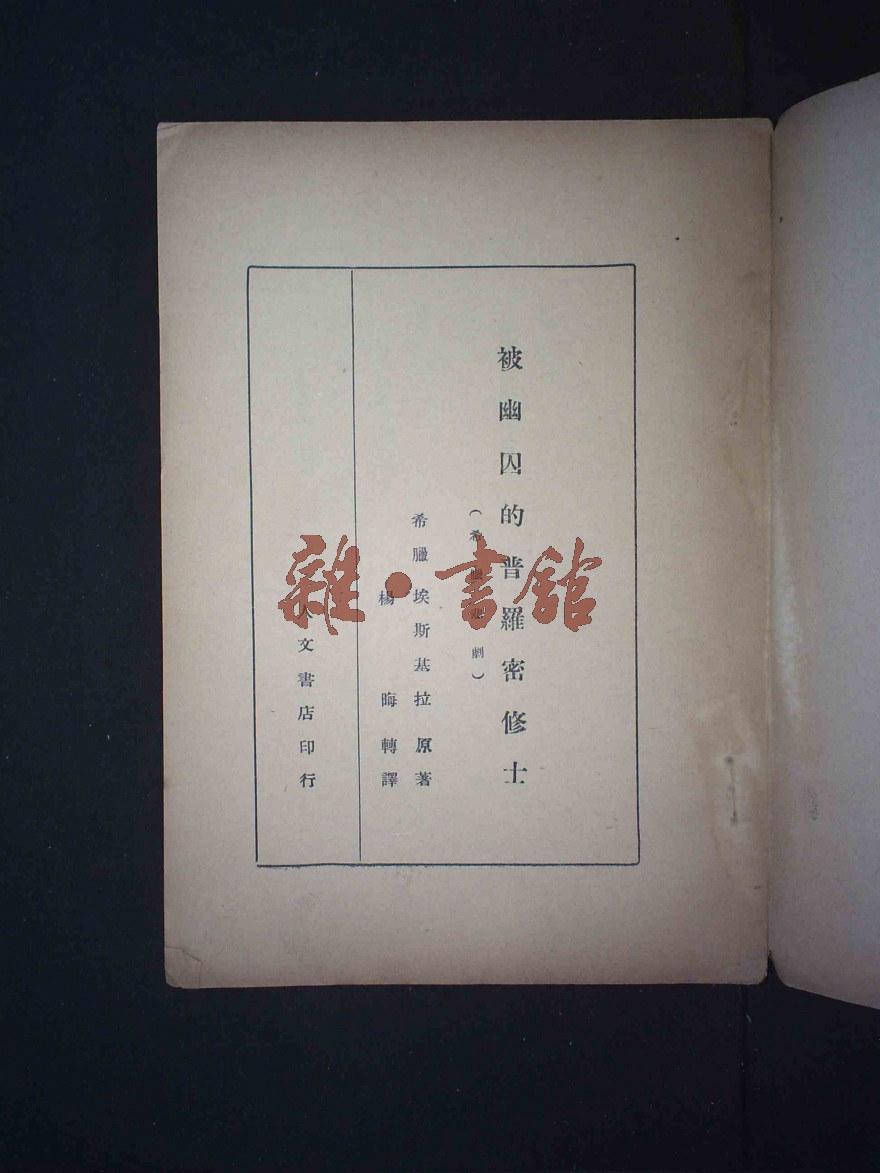 被幽囚的普羅密修士
(希臘悲劇)
希臘 埃斯基拉原著
楊晦轉譯
人文書店印行
雜·書館